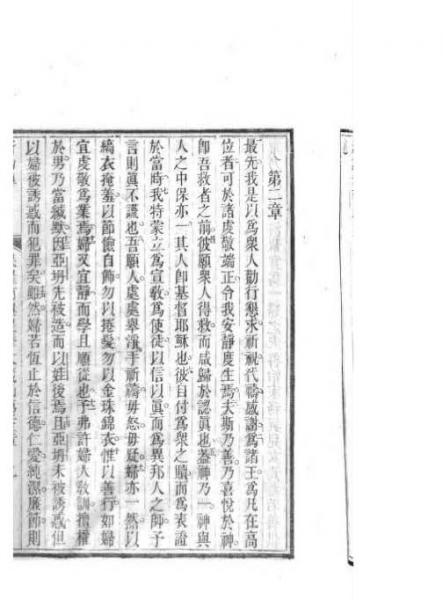 第二章
最先我是以爲衆人勸行懇求祈祝代禱感謝爲諸王爲凡在高
位者可於諸虔敬端正令我安靜度生焉夫斯乃善乃喜悅於神
卽吾救者之前彼願衆人得救而咸歸於認眞也蓋神乃一神與
人之中保亦一其人卽基督耶穌也彼自付爲衆之贖而爲表證
於當時我特蒙立爲宣教爲使徒以信以眞而爲異邦人之師予
言則眞不謊也吾願人處處舉淨手祈禱毋怒毋疑婦亦一然以
縞衣掩羞以節儉自飾勿以捲髮勿以金珠錦衣惟以善行如婦
宜虔敬爲業焉婦又宜靜而學且順從也予弗許婦人教訓擅權
於男乃當緘默因亞坍先被造而以娃後焉且亞坍未被誘惑但
以婦彼誘惑而犯罪矣雖然婦若恆止於信德仁愛純潔廉節則